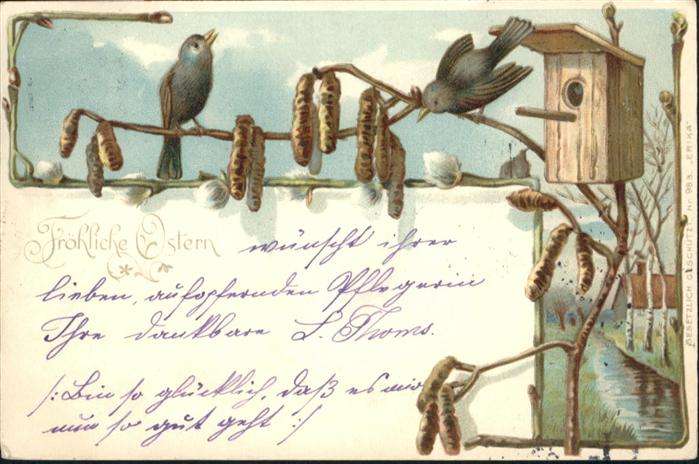 Fröhliche Ostern wünscht ihrer
lieben, aufopfernden Pflegerin
Ihre dankbare L. Thoms.
/: Bin so glücklich, daß es mir
nun so gut geht :/
GESETZLICH GESCHÜTZT Nr. 983.